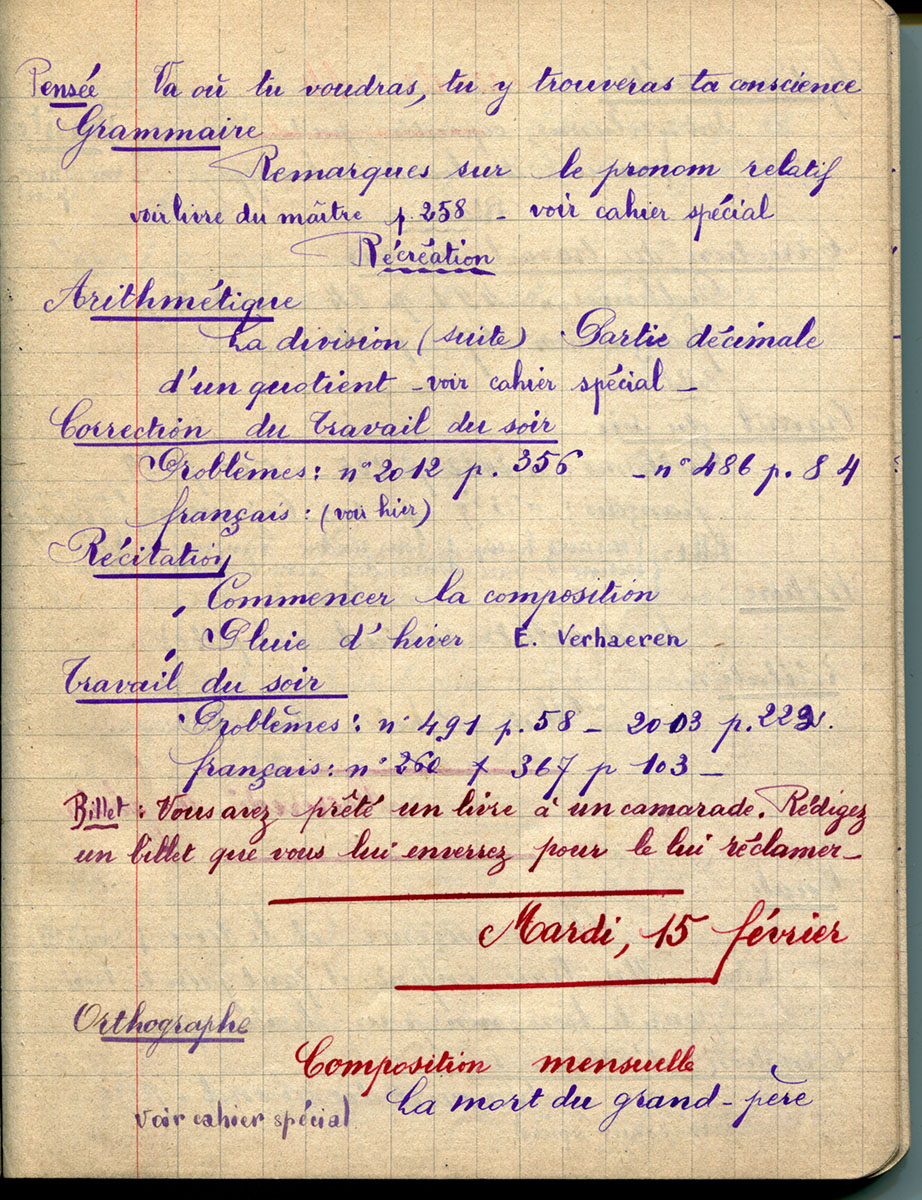 Pensée Va où tu voudras, tu y trouveras ta conscience
Grammaire
Remarques sur le pronom relatif
voir livre du maître p. 258 - voir cahier spécial
Récréation
Arithmétique
La division (suite) Partie décimale
d'un quotient - voir cahier spécial -
Correction du Travail du soir
Problèmes : n° 2012 p. 356 - n° 486 p. 84
français : (voir hier)
Récitation
Commencer la composition
Pluie d'hiver E. Verhaeren
Travail du soir
Problèmes : n° 491 p. 58 - 2003 p. 222.
français : n° 260 + 367 p 103 -
Billet : Vous avez prêté un livre à un camarade. Rédigez
un billet que vous lui enverrez pour le lui réclamer -
Mardi, 15 février
Orthographe
Composition mensuelle
La mort du grand-père
voir cahier spécial